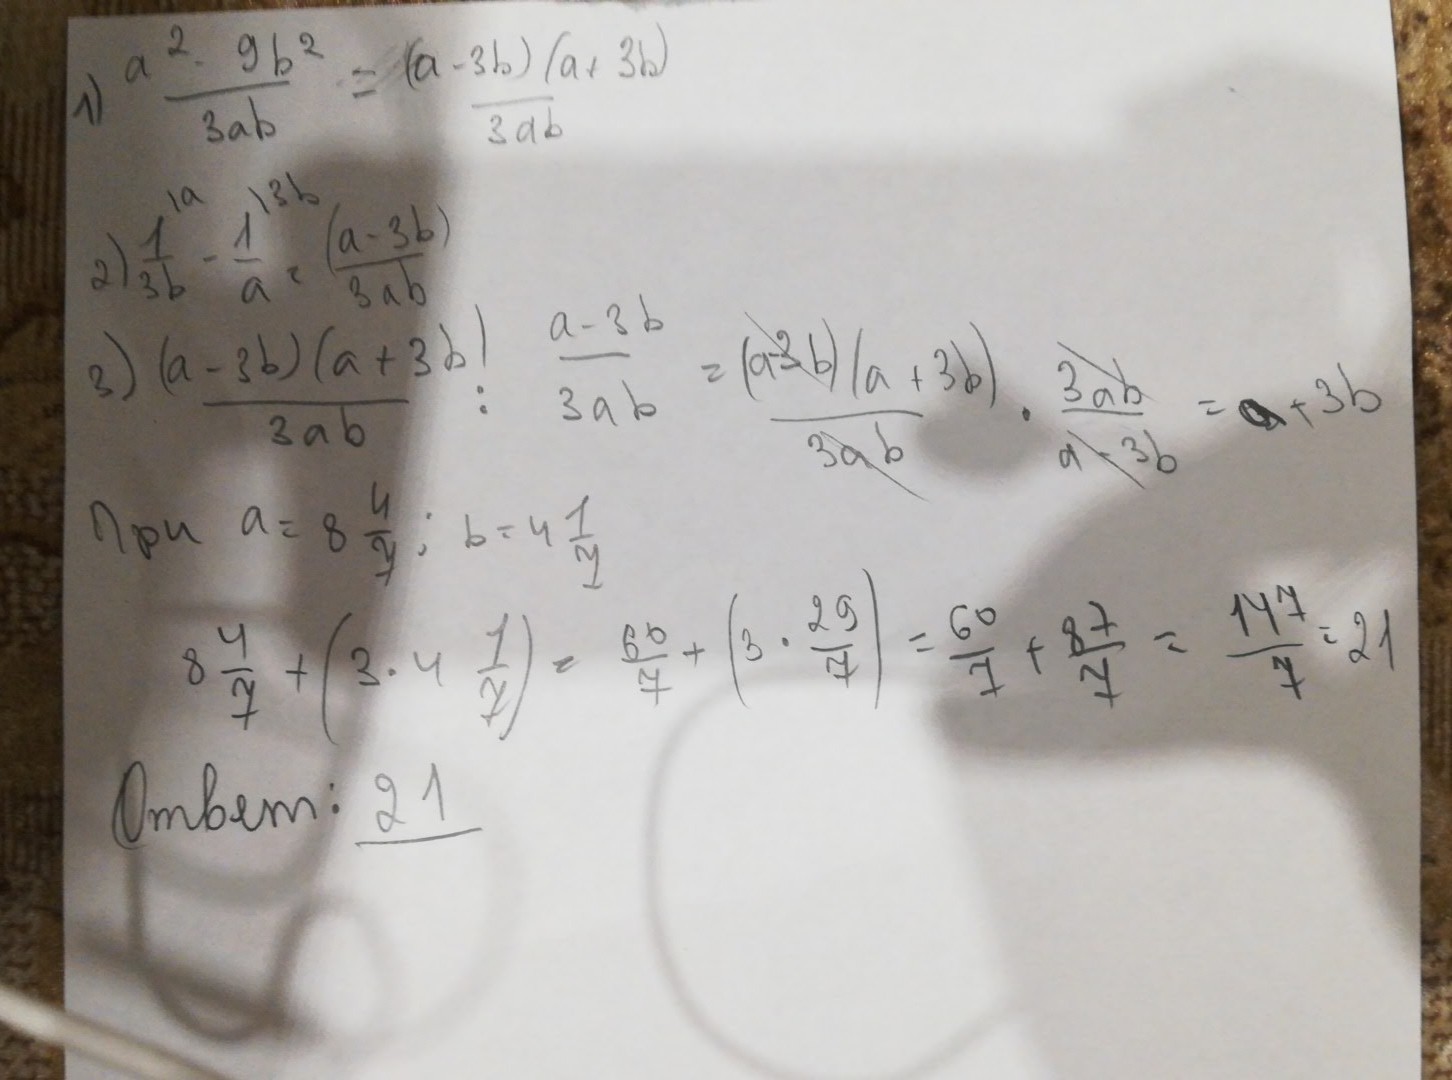 1) (a² - 9b²)/(3ab) = ((a - 3b)(a + 3b))/(3ab)
2) 1/(3b) \a - 1/a \3b = (a - 3b)/(3ab)
3) ((a - 3b)(a + 3b))/(3ab) : (a - 3b)/(3ab) = ((a - 3b)(a + 3b))/(3ab) · (3ab)/(a - 3b) = a + 3b
При a = 8 4/7; b = 4 1/7
8 4/7 + (3 · 4 1/7) = 60/7 + (3 · 29/7) = 60/7 + 87/7 = 147/7 = 21
Ответ: 21